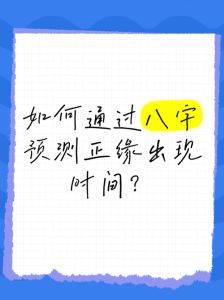 如何通过八字
预测正缘出现
时间?